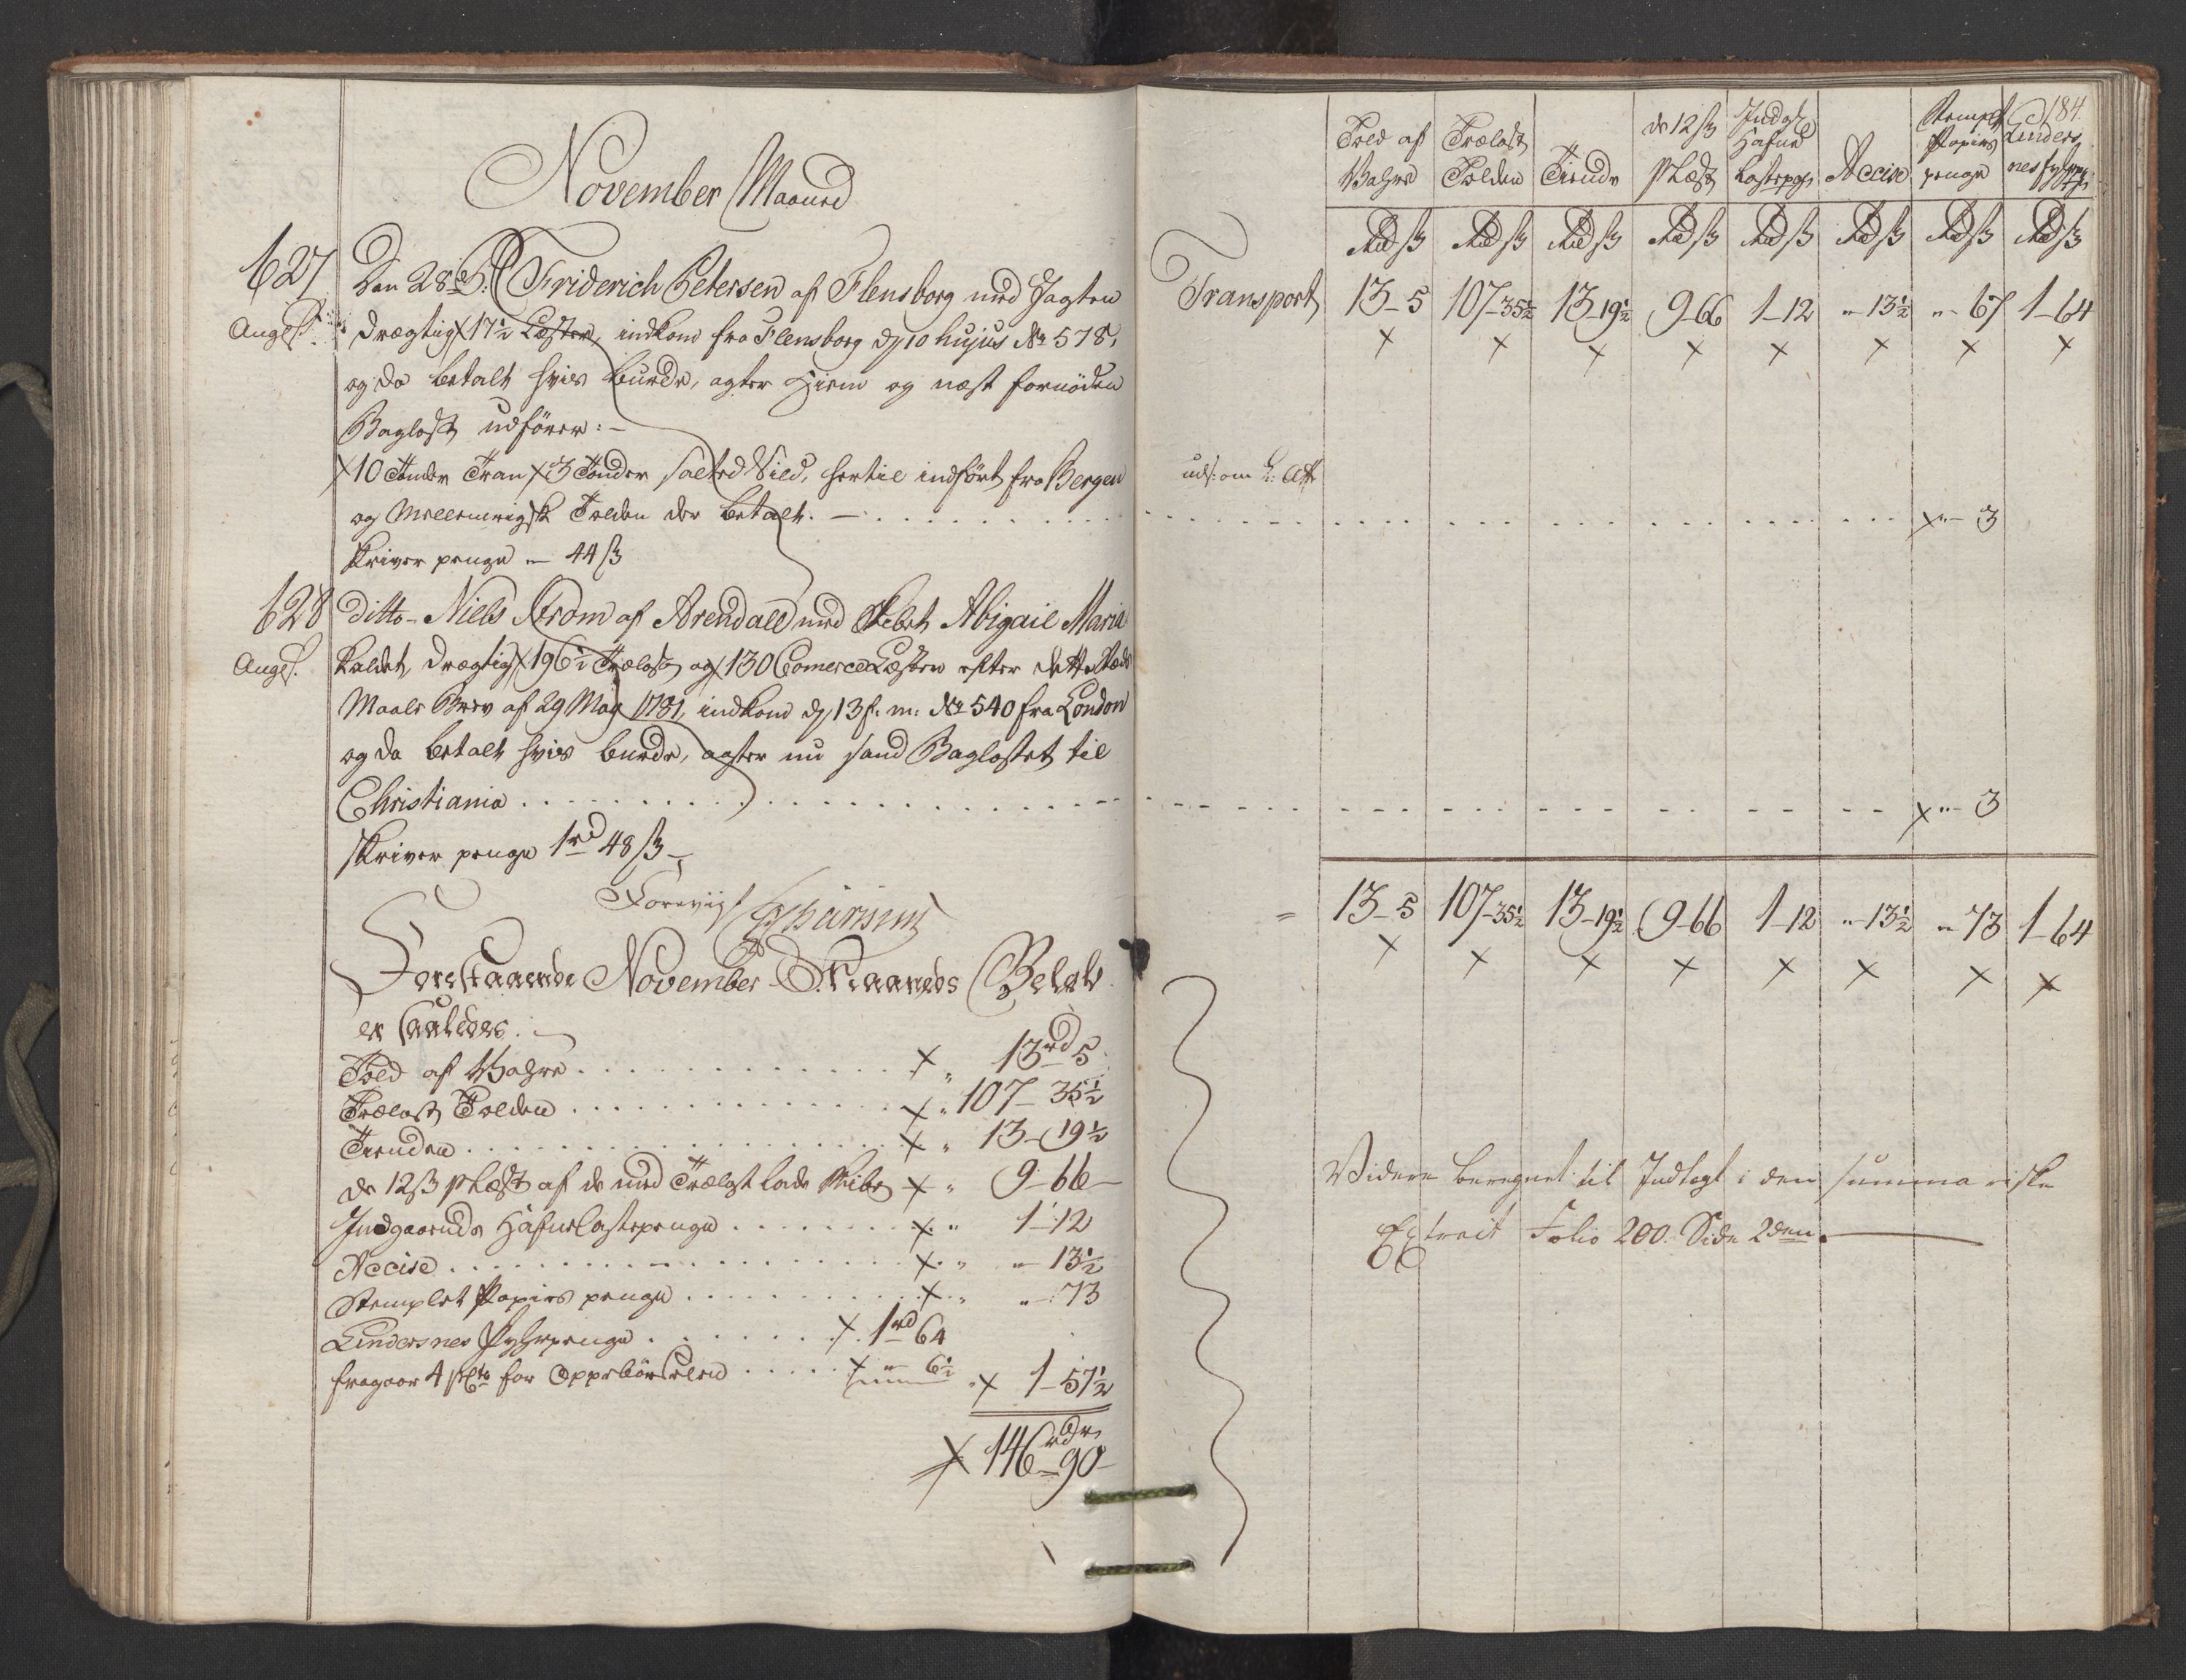 November Maaned
627
Den 28de Friderich Petersen af Flensborg med Jagten
Angl.
drægtig 17½ Læster, indkom fra Flensborg d. 10 hujus No 578,
og da betalt hvis burde, agter Hiem og næst fornöden
Baglast udförer:
10 Tönder Tran 3 Tönder salted Sild, hertil indfört fra Bergen
og Mellemrigsk Tolden der betalt.
skriver penge - 44 ß
628
Ditto - Niels Strøm af Arendall med Skibet Abigail Maria
Angl.
kaldet, drægtig 196½ Trælast og 130 Comerce Læster efter dette Steds
Maale Brev af 29 May 1781, indkom d. 13 f. m. No 540 fra London
og da betalt hvis burde, agter nu sand Baglastet til
Christiania
skriver penge 1rd 48 ß
Forevist
Forestaaende November Maaneds Belöb
er saaledes.
Told af Vahre x 13rd 5
Trælast Tolden x 107 - 35½
Tienden x 13 - 19½
de 12 ß pr Læst af de med Trælast lade Skibe x 9 - 66
Indgaaende Hafnelastepenge x 1 - 12
Accise x " - 13½
Stemplet Papirs penge x " - 73
Lindersnes Fyhrpenge x 1rd 64
fragaar 4 pCto for Oppebörselen x " 6½
x 1 - 57½
x 146rdr 90
184
Told af Vahre
Trælast Tolden
Tiende
de 12 ß pr Læst
Indg. Hafne Lastepeng
Accise
Stemplt Papirs penge
Linders nes fyhrpg
Rd ß Rd ß Rd ß Rd ß Rd ß Rd ß Rd ß Rd ß
Transport 13 - 5 107 - 35½ 13 - 19½ 9 - 66 1 - 12 " - 13½ " - 67 1 - 64
x x x x x x x x
uds: om
x " - 3
x " - 3
= 13 - 5 107 - 35½ 13 - 19½ 9 - 66 1 - 12 " - 13½ " - 73 1 - 64
x x x x x x x x
Videre beregnet til Indtægt i den summariske
Extract Folio 200. Side 2den.